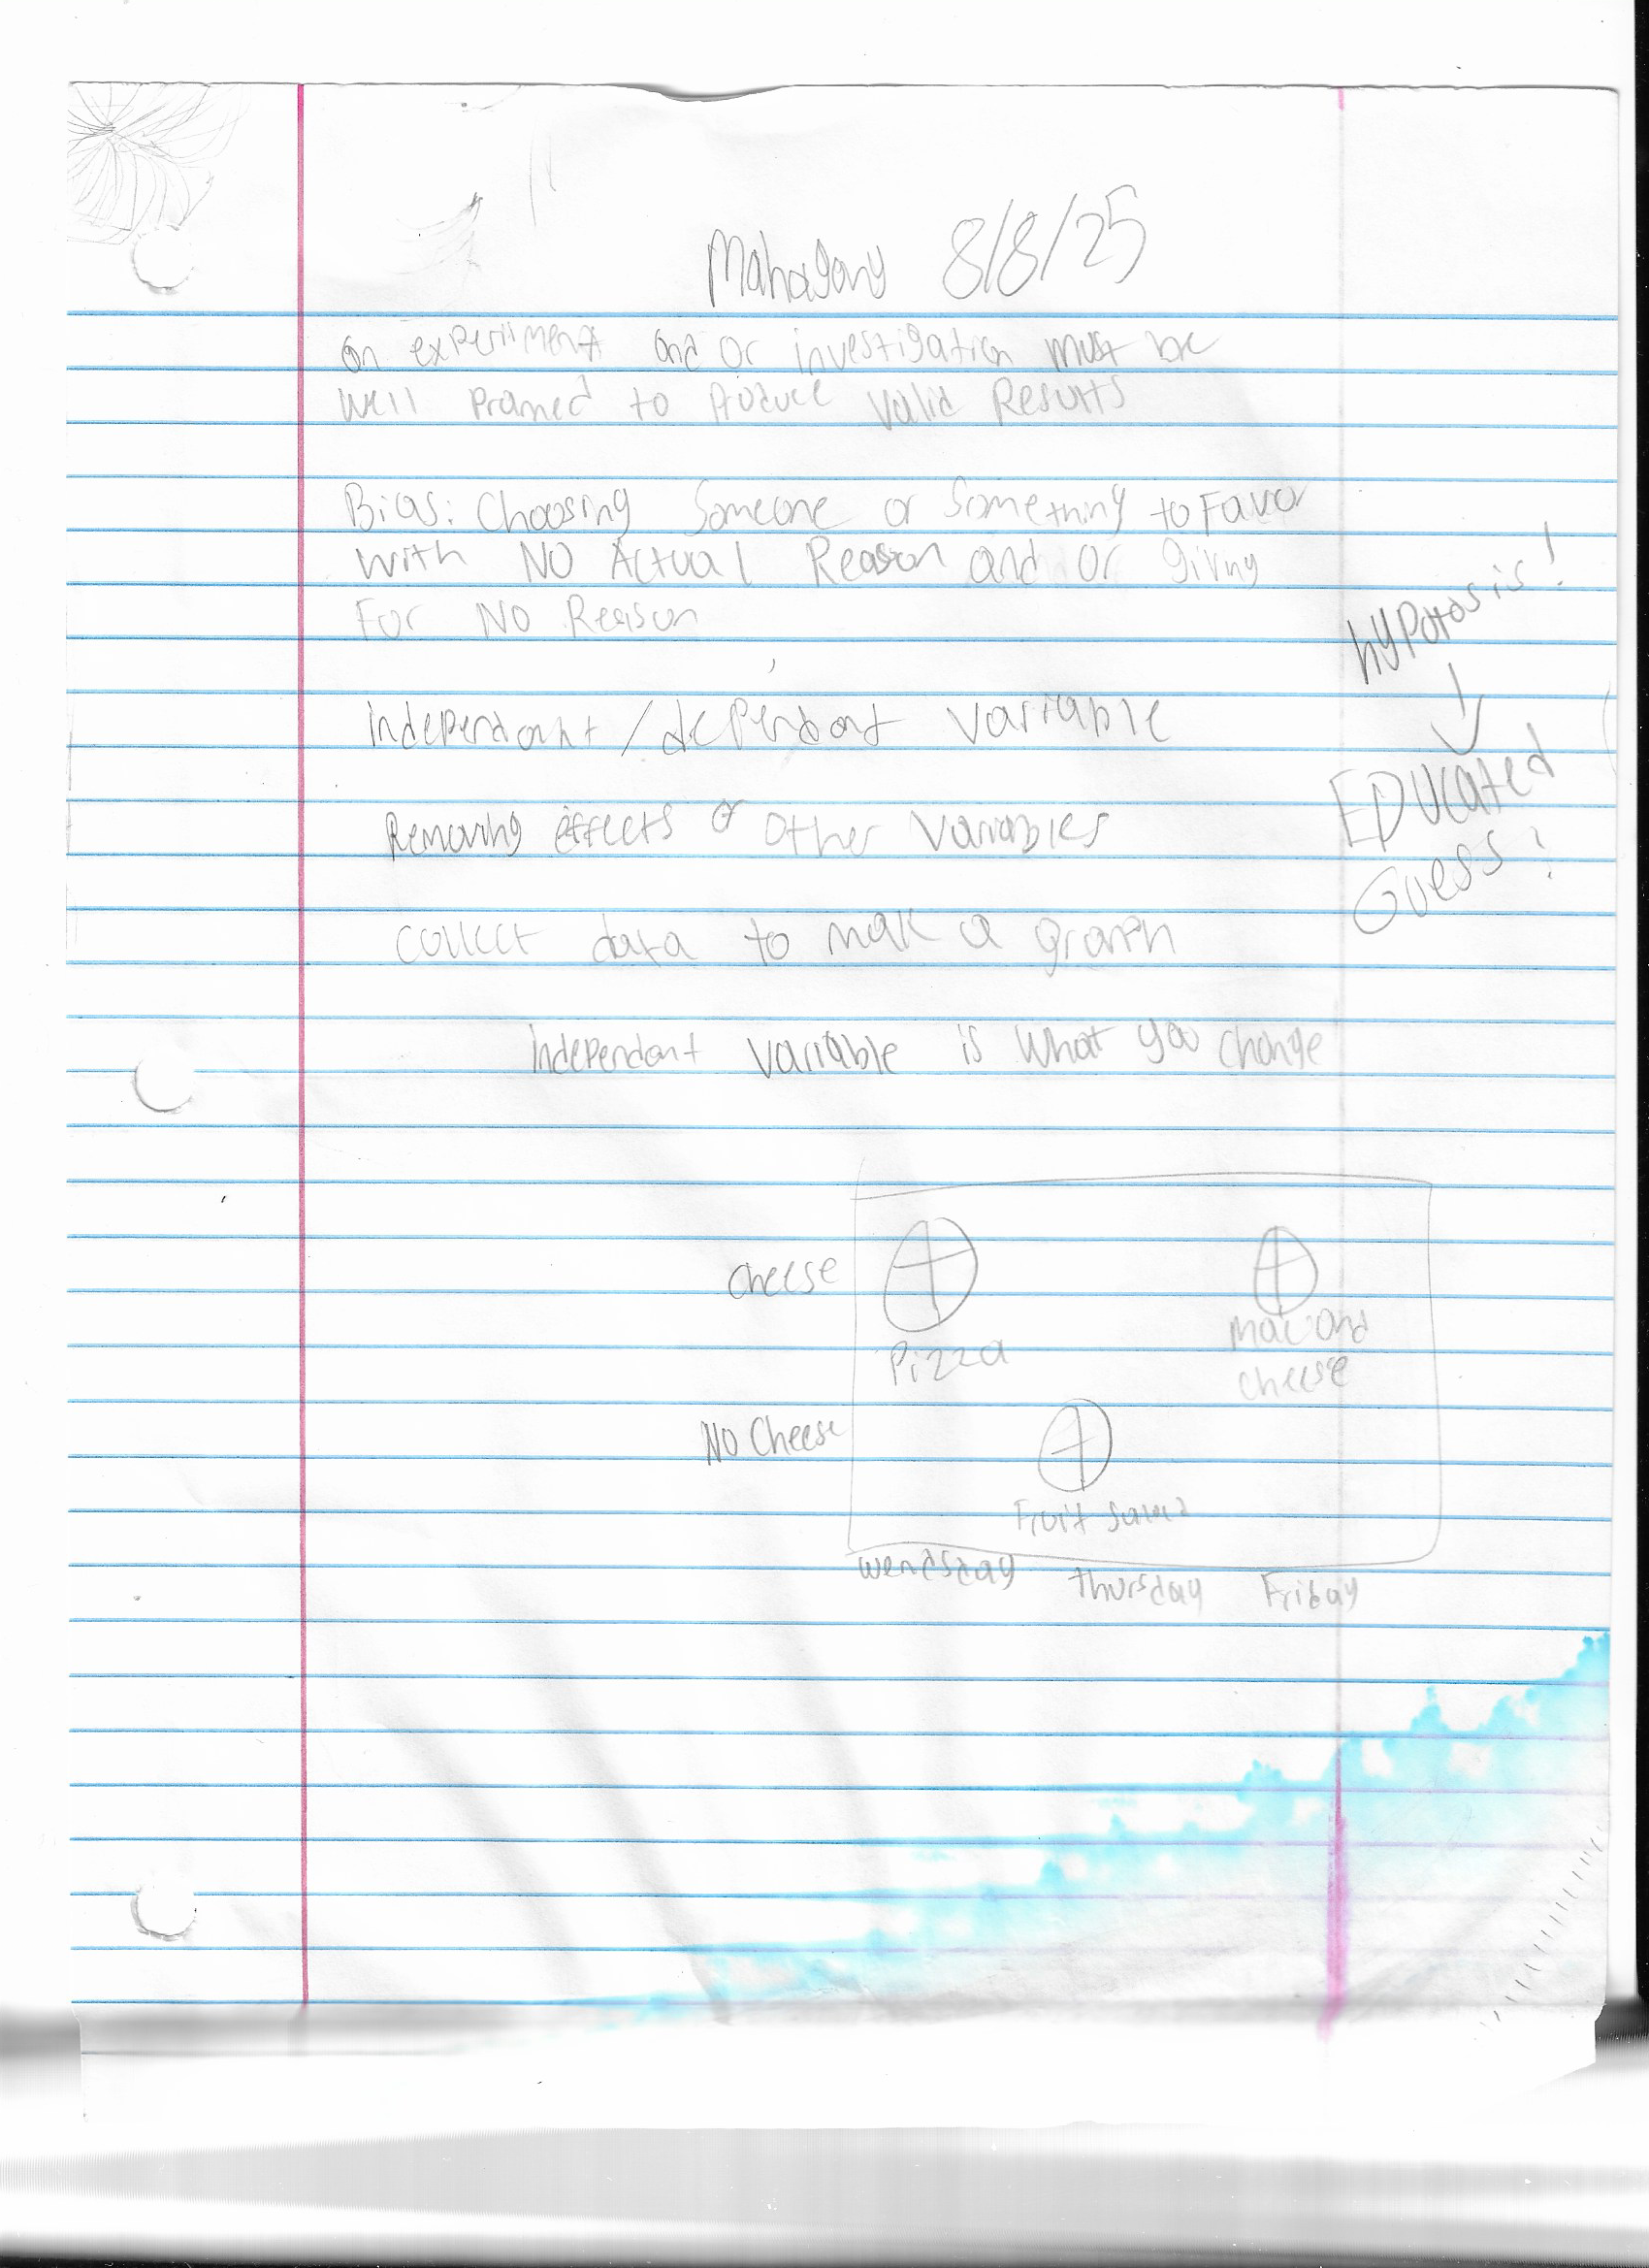 Mahagony 8/8/25
an experiiment and or investigation must be
well planned to produce valid Results
Bias: Choosing Someone or Something to Favor
With NO Actual Reason and or giving
For NO Reason
hypotosis!
independant / dependant variable
EDUcated
Guess!
Removing effects of other variables
collect data to mak a graph
Independant variable is what you change
Cheese
Pizza
Mac and
cheese
No Cheese
Fruit Salad
wendsday thursday Friday